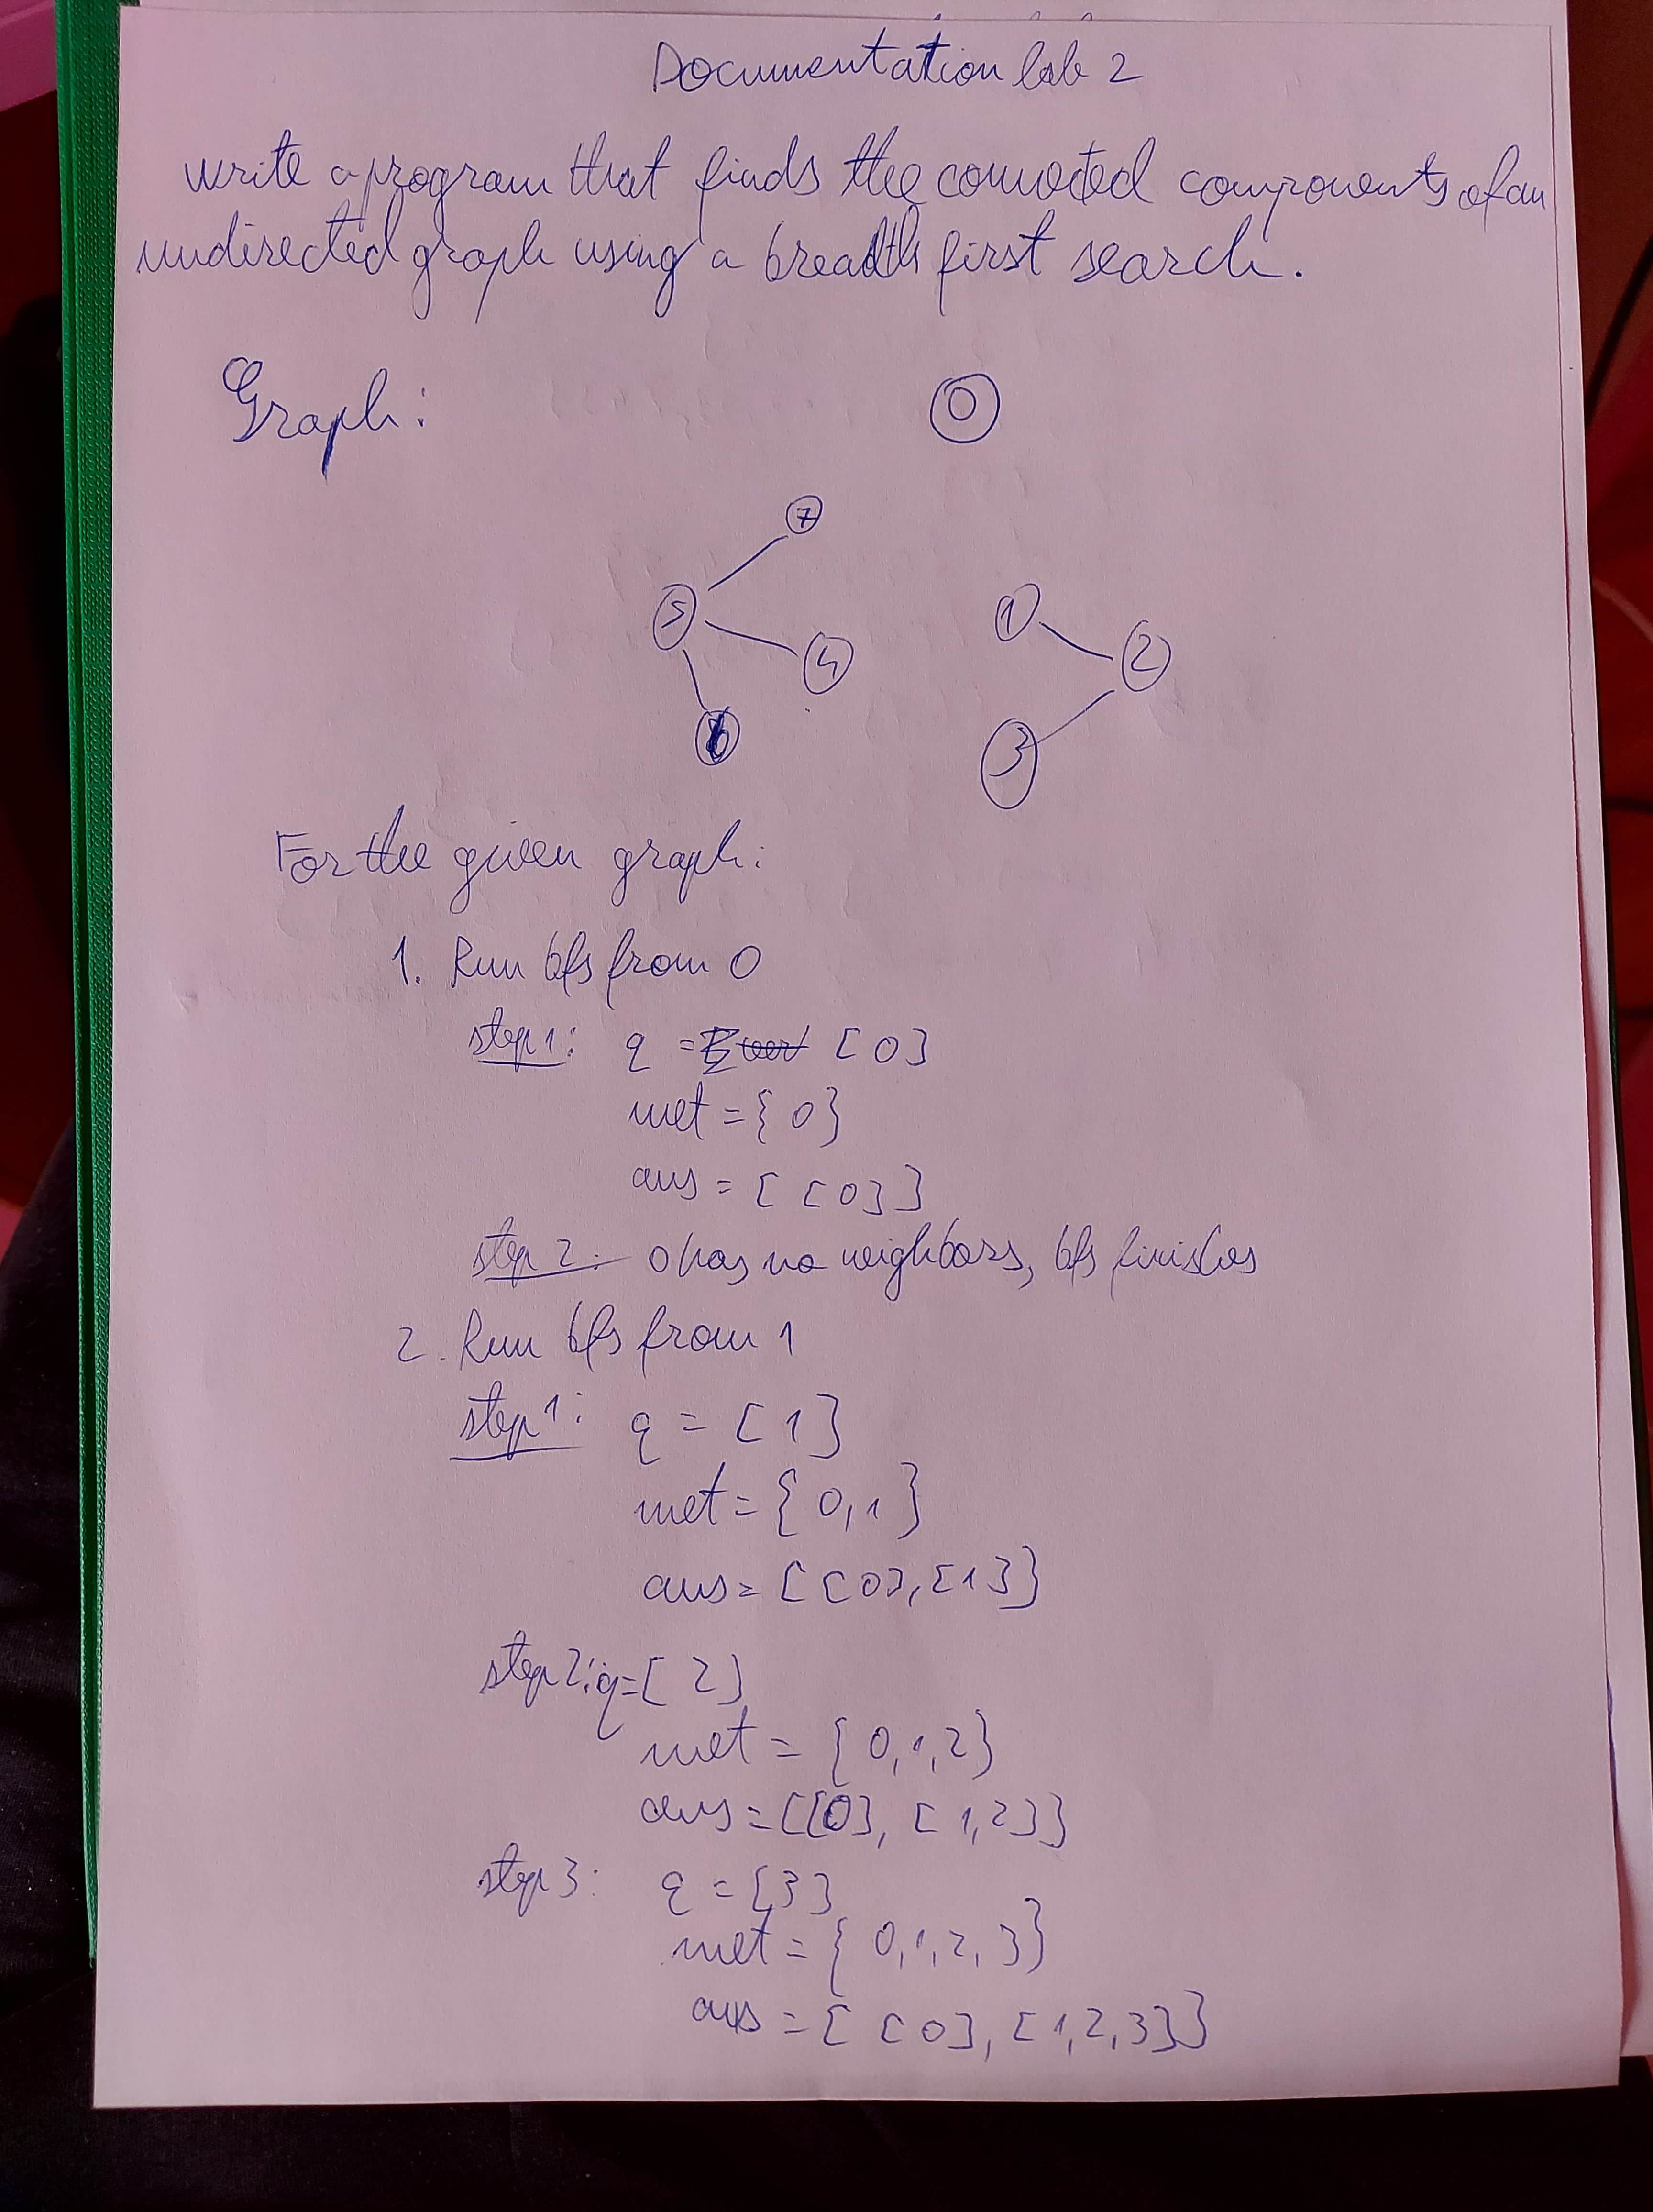 Documentation lab 2
write a program that finds the connected components of an
undirected graph using a breadth first search.
Graph:
0
7
5
1
4
2
6
3
For the given graph:
1. Run bfs from 0
step 1: q = [0]
met = {0}
ans = [[0]]
step 2: 0 has no neighbors, bfs finishes
2. Run bfs from 1
step 1: q = [1]
met = {0,1}
ans = [[0],[1]]
step 2: q = [2]
met = {0,1,2}
ans = [[0],[1,2]]
step 3: q = [3]
met = {0,1,2,3}
ans = [[0],[1,2,3]]